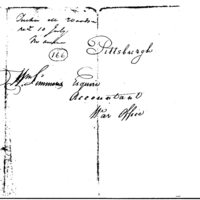 recd 10 July
166
Pittsburgh
Wm Simmons Esquire
Accountant
War Office